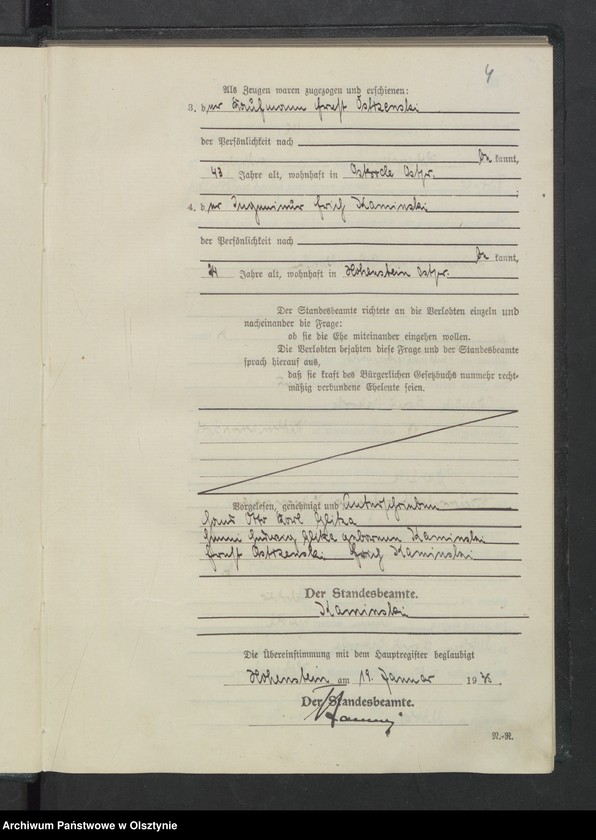 4
Als Zeugen waren zugezogen und erschienen:
3. der Kaufmann Ernst Ostzenski
der Persönlichkeit nach
be kannt,
43 Jahre alt, wohnhaft in Osterode Ostpr.
;
4. der Ingenieur Erich Kaminski
der Persönlichkeit nach
be kannt,
34 Jahre alt, wohnhaft in Hohenstein Ostpr.
Der Standesbeamte richtete an die Verlobten einzeln und
nacheinander die Frage:
ob sie die Ehe miteinander eingehen wollen.
Die Verlobten bejahten diese Frage und der Standesbeamte
sprach hierauf aus,
daß sie kraft des Bürgerlichen Gesetzbuchs nunmehr recht-
mäßig verbundene Eheleute seien.
Vorgelesen, genehmigt und unterschrieben
Hans Otto Karl Glitza
Hedwig Glitza geborene Kaminski
Ernst Ostzenski Erich Kaminski
Der Standesbeamte.
Kaminski
Die Übereinstimmung mit dem Hauptregister beglaubigt
Hohenstein am 19. Januar 19
Der Standesbeamte.
N.-R.
Archiwum Państwowe w Olsztynie